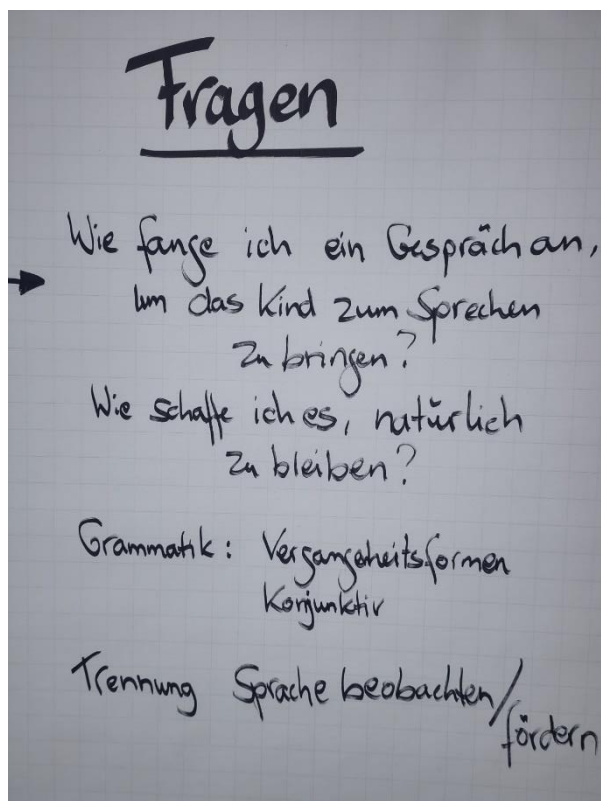 Fragen
Wie fange ich ein Gespräch an,
um das Kind zum Sprechen
zu bringen?
Wie schaffe ich es, natürlich
zu bleiben?
Grammatik: Vergangeheitsformen
Konjunktiv
Trennung Sprache beobachten/
fördern